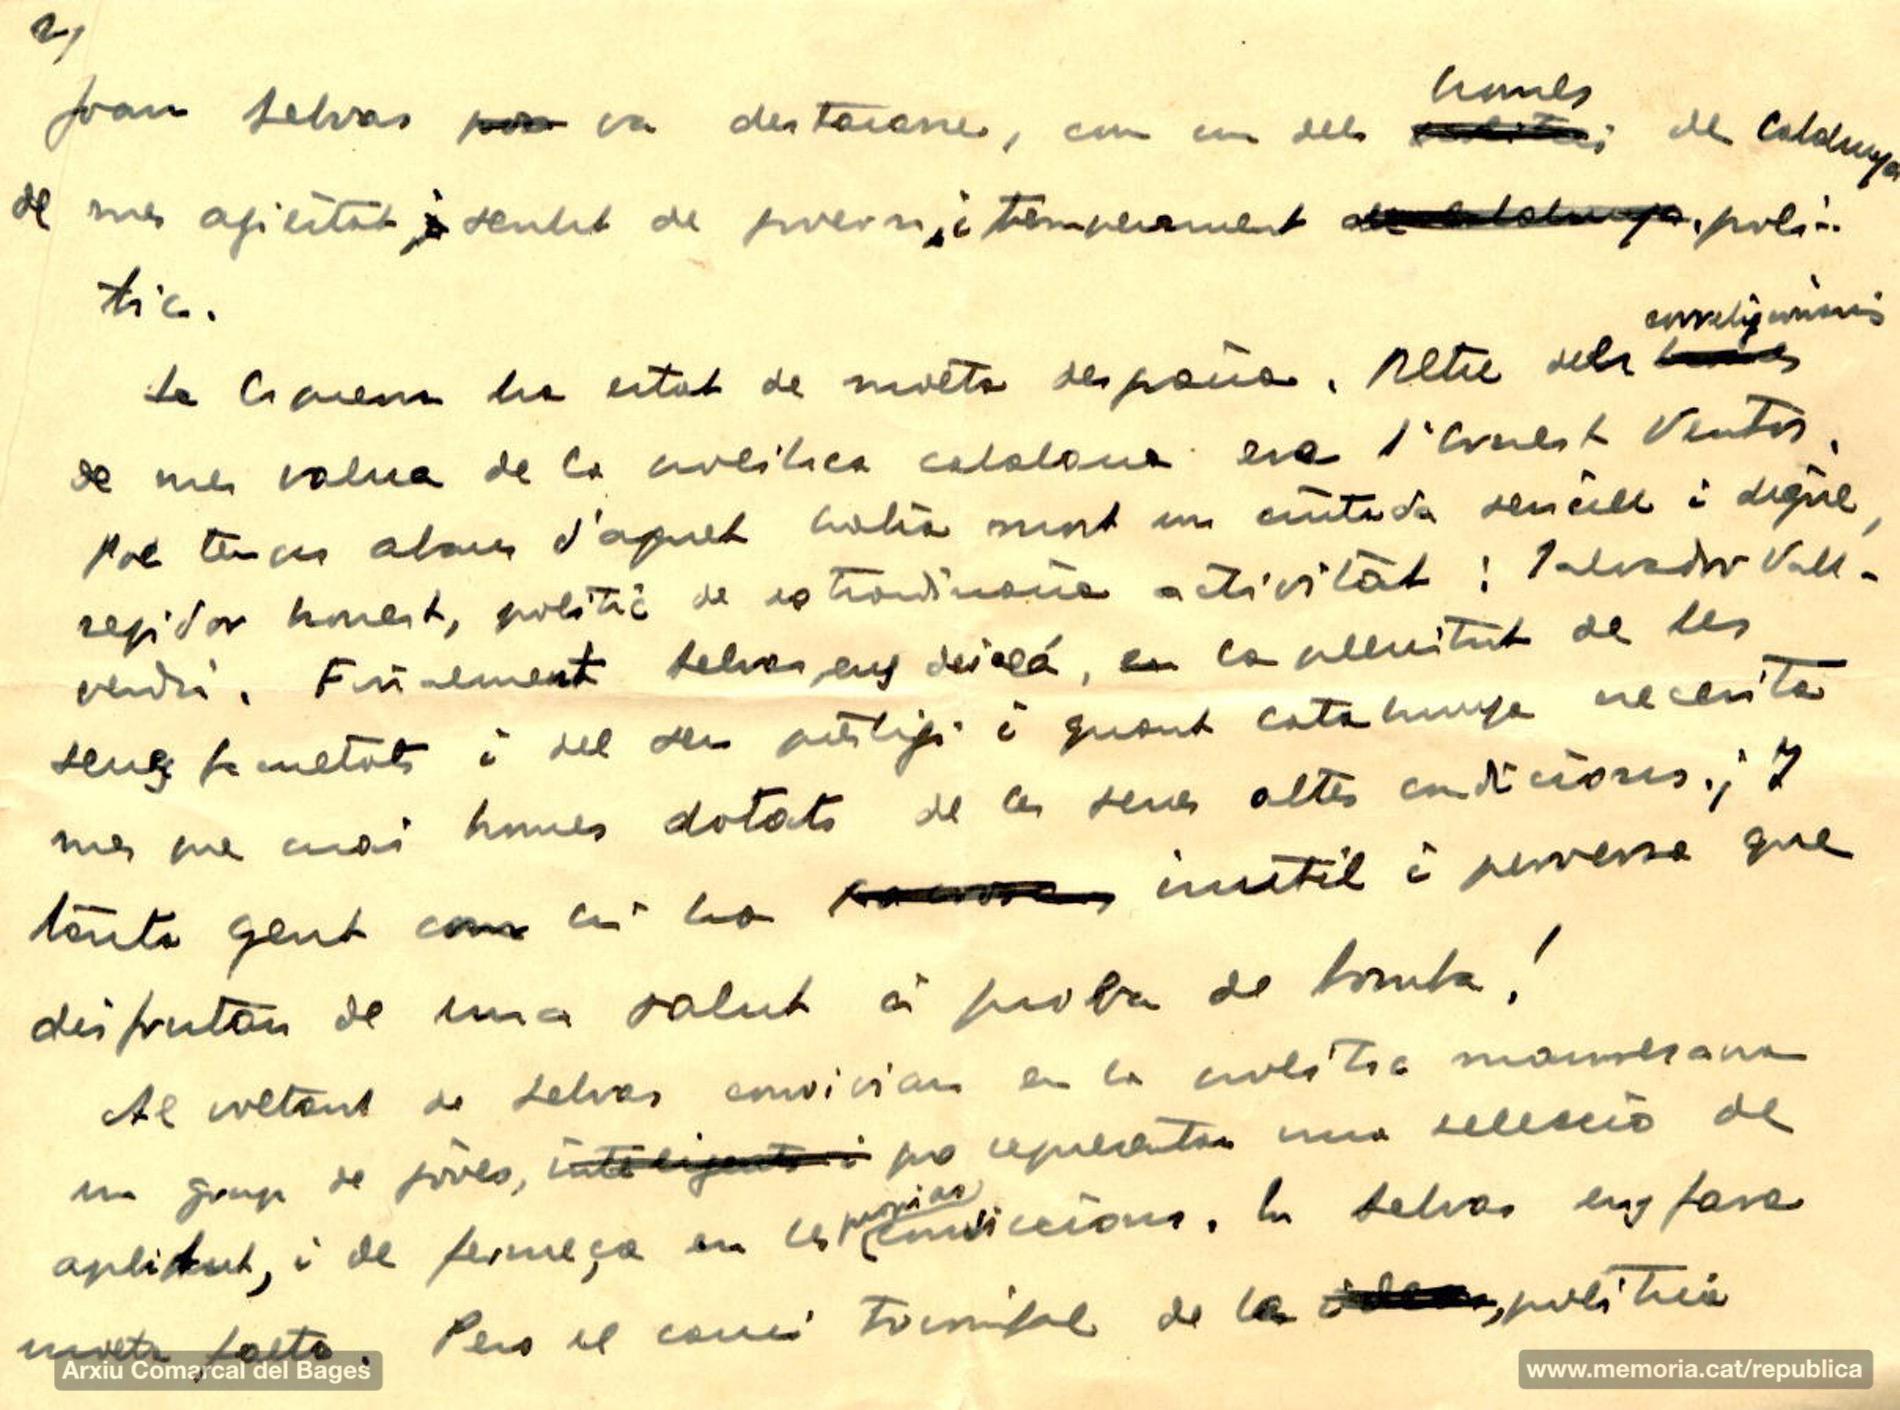 2)
homes
Joan Selvas va destacarse, com un dels de Catalunya
de mes agilitat, sentit de govern, i temperament de Catalunya, poli-
tic.
correligionaris
La Esquerra ha estat de molta desgracia. Altre dels homes
de mes valua de la politica catalana era l'Ernest Ventos.
Poc temps abans d'aquet havia mort un ciutada sencill i digne,
regidor honest, politic de extraordinaria activitat: Salvador Vall-
verdú. Finalment Selvas ens deixá, en la plenitut de les
seues facultats i del seu prestigi i quant Catalunya necesita
mes que mai homes dotats de les seues altes condicions. ¡I
tanta gent com hi ha inutil i perversa que
disfrutan de una salut a proba de bomba!
Al voltant de Selvas convivian en la politica manresana
un grup de joves, inteligents i que representan una selecció de
propias
aplitut, i de fermeça en les conviccions. En Selvas ens fara
molta falta. Pero el cami triomfal de la idea, politica
Arxiu Comarcal del Bages
www.memoria.cat/republica